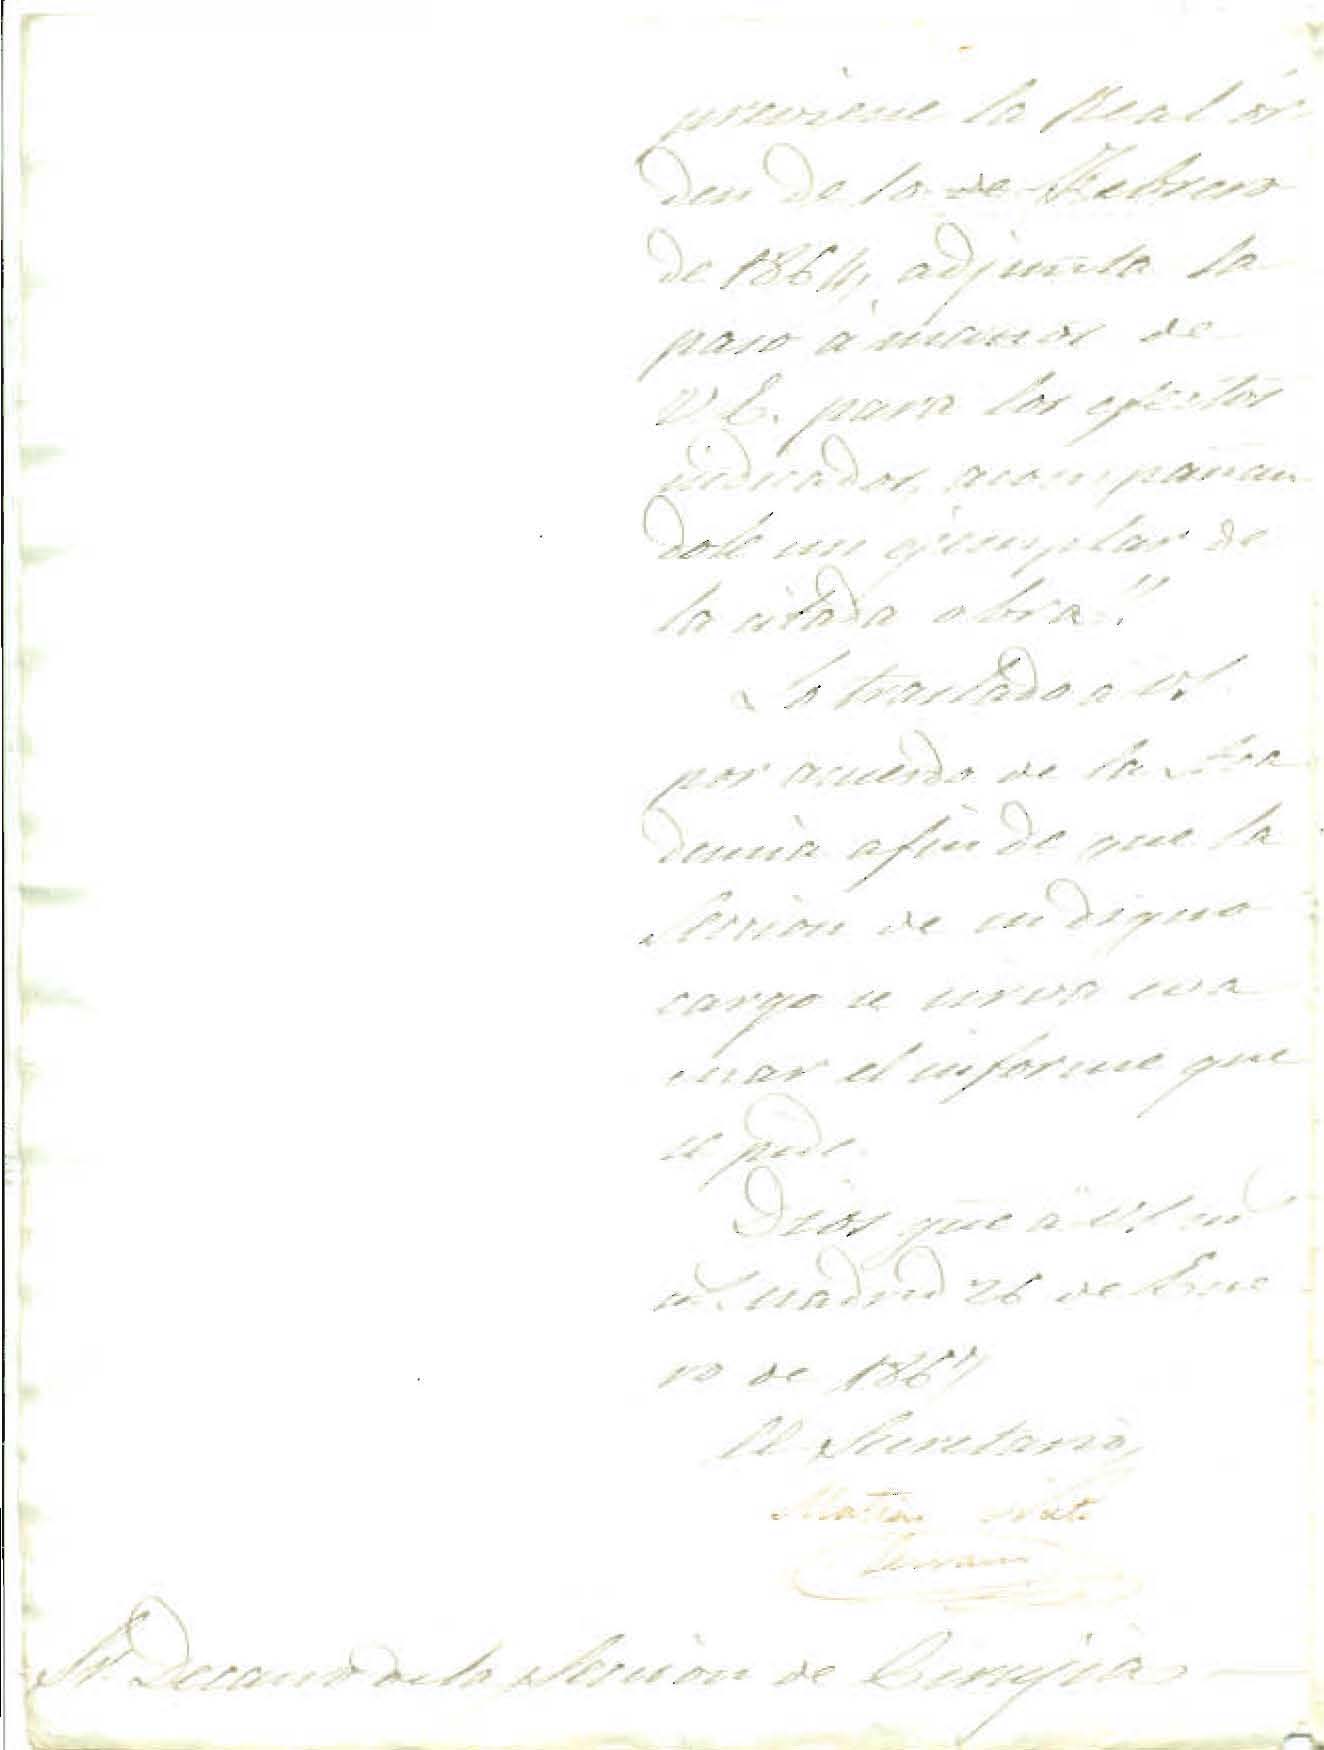 previene la Real or
den de 10 de Febrero
de 1864, adjunta la
paso á manos de
V.E. para los efectos
indicados, acompañan
dole un ejemplar de
la citada obra."
Lo traslado a VS.
por acuerdo de la Aca
demia a fin de que la
Seccion de su digno
cargo se sirva eva
cuar el informe que
se pide.
Dios gue á VS. m.
a. Madrid 26 de Ene
ro de 1867
El Secretario,
Matias Nieto
Serrano
Sr. Decano de la Seccion de Cirujia